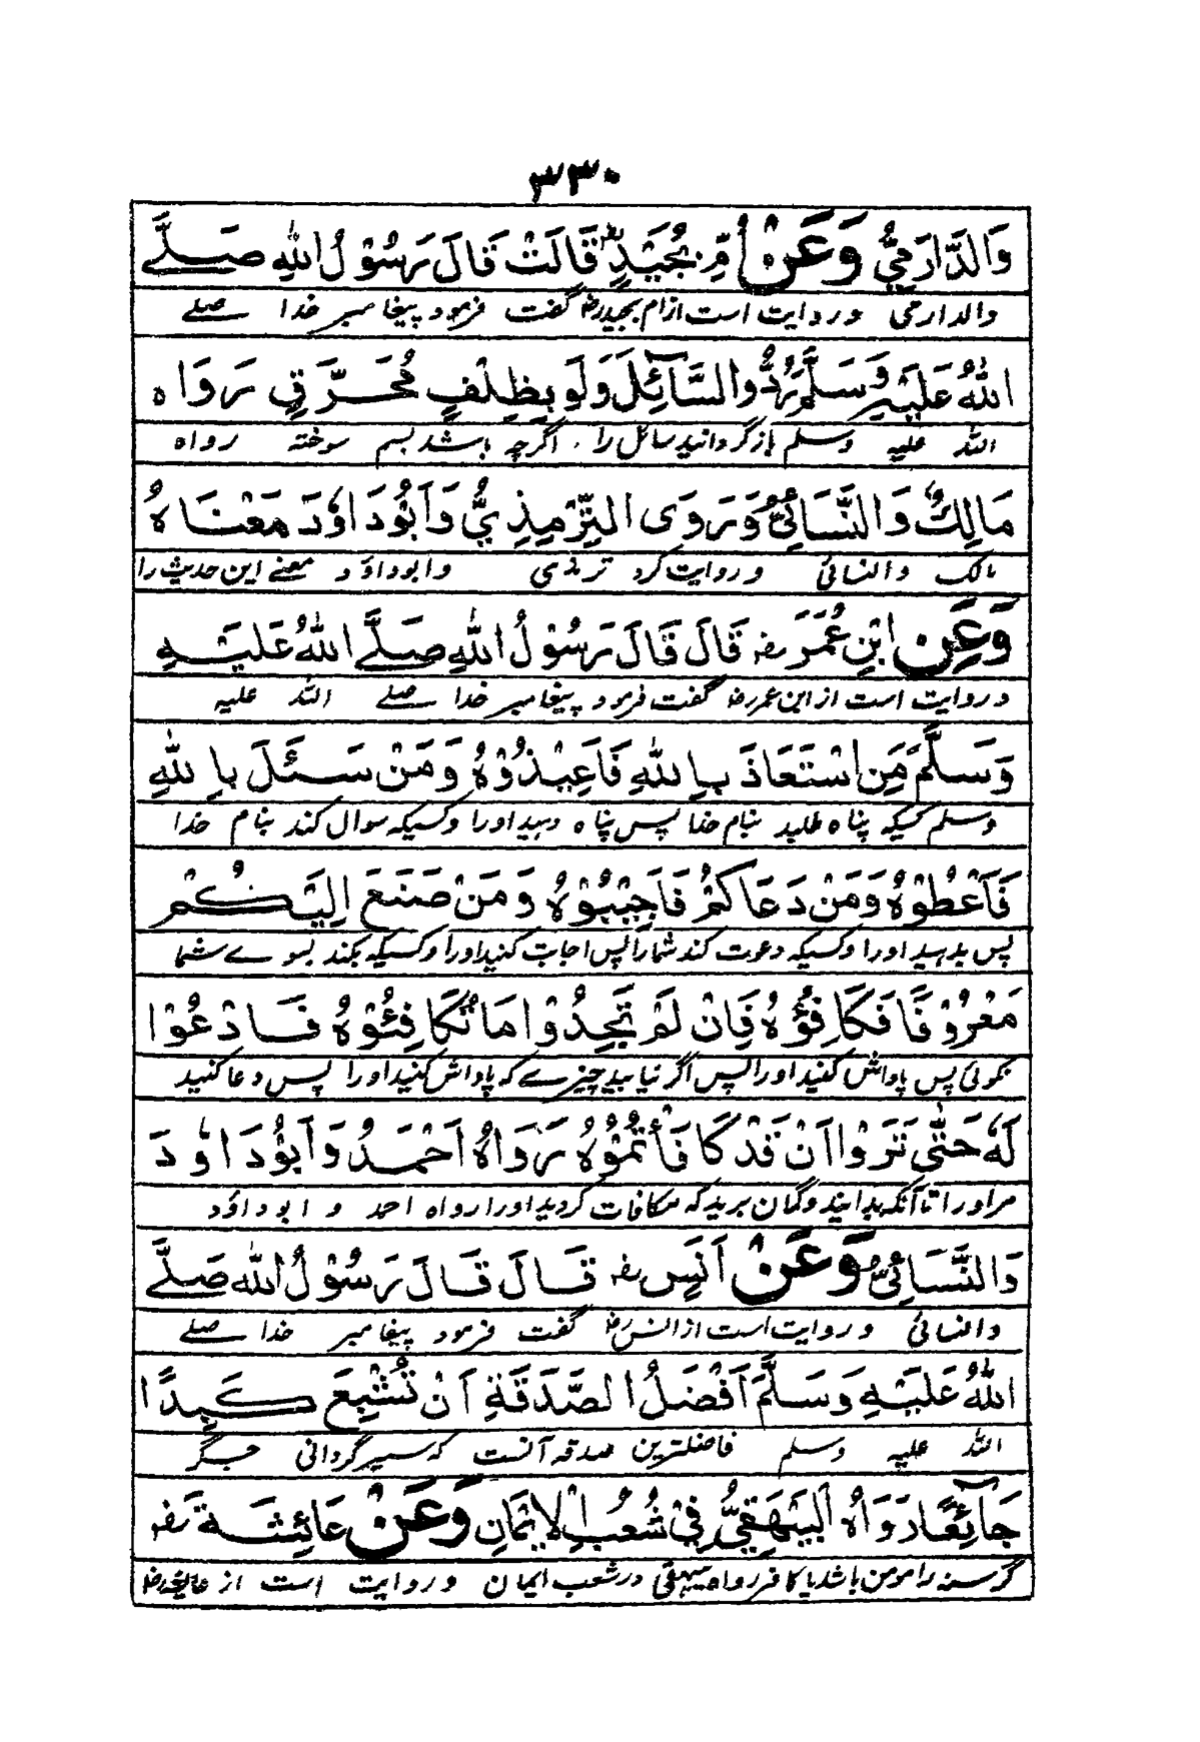 ۳۳۰
وَالدَّارَمِيُّ وَعَنْ اُمِّ بُجَيْدٍ قَالَتْ قَالَ رَسُوْلُ اللهِ صَلَّے
والدارمی وروایت است ازام بجیدرض گفت فرمود پیغامبر خدا صلے
اللهُ عَلَيْهِ وَسَلَّمَ رُدُّوا السَّآئِلَ وَلَو بِظِلْفٍ مُحَرَّقٍ رَوَاه
الله علیه وسلم بازگردانید سائل را، اگرچه باشد بسم سوخته رواه
مَالِكٌ وَالنَّسَائِيُّ وَرَوَى التِّرْمِذِيُّ وَاَبُوْدَاوٗدَ مَعْنَاهُ
مالک والنسائی وروایت کرد ترمذی وابوداؤد معنے این حدیث را
وَعَنِ ابْنِ عُمَرَ رضہ قَالَ قَالَ رَسُوْلُ اللهِ صَلَّے اللهُ عَلَيْهِ
وروایت است ازابن عمررض گفت فرمود پیغامبر خدا صلے الله علیه
وَسَلَّمَ مَنِ اسْتَعَاذَ بِاللهِ فَاَعِيْذُوْهُ وَمَنْ سَئَلَ بِاللهِ
وسلم کسیکه پناه طلبد بنام خدا پس پناه دهید اورا وکسیکه سوال کند بنام خدا
فَاَعْطُوْهُ وَمَنْ دَعَاكُمْ فَاَجِيْبُوْهُ وَمَنْ صَنَعَ اِلَيْكُمْ
پس بدهید اورا وکسیکه دعوت کند شمارا پس اجابت کنید اورا وکسیکه بکند بسوے شما
مَعْرُوْفًا فَكَافِئُوْهُ فَاِنْ لَمْ تَجِدُوْا مَا تُكَافِئُوْهُ فَادْعُوْا
نکوئی پس پاداش کنید اورا پس اگر نیابید چیزے که پاداش کنید اورا پس دعا کنید
لَهٗ حَتّٰى تَرَوْا اَنْ قَدْ كَافَأْتُمُوْهُ رَوَاهُ اَحْمَدُ وَاَبُوْدَاوٗدَ
مراورا تاآنکه بدانید وگمان برید که مکافات کردید اورا رواه احمد و ابوداؤد
وَالنَّسَائِيُّ وَعَنْ اَنَسٍ رضہ قَالَ قَالَ رَسُوْلُ اللهِ صَلَّے
والنسائی وروایت است ازانس رض گفت فرمود پیغامبر خدا صلے
اللهُ عَلَيْهِ وَسَلَّمَ اَفْضَلُ الصَّدَقَةِ اَنْ تُشْبِعَ كَبِدًا
الله علیه وسلم فاضلترین صدقه آنست که سیرگردانی جگر
جَآئِعًا رَوَاهُ الْبَيْهَقِيُّ فِيْ شُعَبِ الْاِيْمَانِ وَعَنْ عَائِشَةَ رضہ
گرسنه را مومن باشد یا کافر رواه بیهقی درشعب ایمان وروایت است از عائشه رض